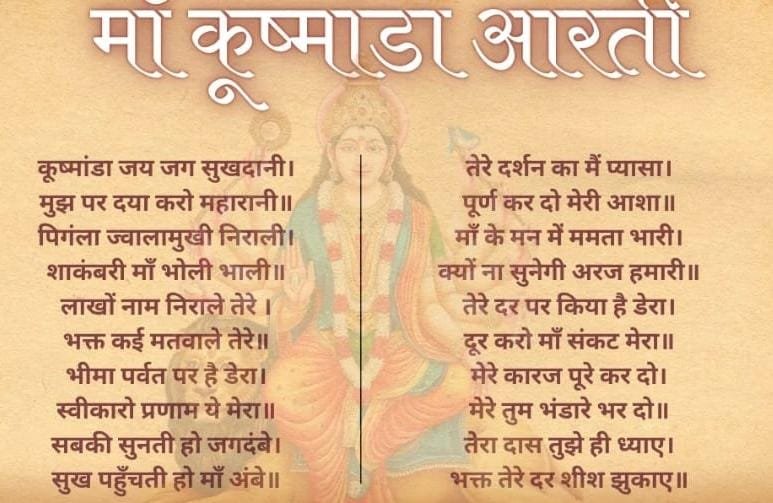 माँ कूष्माडा आरती
कूष्मांडा जय जग सुखदानी।
मुझ पर दया करो महारानी॥
पिगंला ज्वालामुखी निराली।
शाकंबरी माँ भोली भाली॥
लाखों नाम निराले तेरे ।
भक्त कई मतवाले तेरे॥
भीमा पर्वत पर है डेरा।
स्वीकारो प्रणाम ये मेरा॥
सबकी सुनती हो जगदंबे।
सुख पहुँचती हो माँ अंबे॥
तेरे दर्शन का मैं प्यासा।
पूर्ण कर दो मेरी आशा॥
माँ के मन में ममता भारी।
क्यों ना सुनेगी अरज हमारी॥
तेरे दर पर किया है डेरा।
दूर करो माँ संकट मेरा॥
मेरे कारज पूरे कर दो।
मेरे तुम भंडारे भर दो॥
तेरा दास तुझे ही ध्याए।
भक्त तेरे दर शीश झुकाए॥